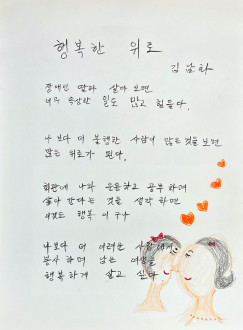 행복한 위로
김남자
장애인 딸과 살아 보면
너무 속상한 일도 많고 힘들다.
나보다 더 불행한 사람이 많은 것을 보면
많은 위로가 된다.
회관에 나와 운동하고 공부하며
살아 간다는 것을 생각 하면
이것도 행복 이구나
나보다 더 어려운 사람에게
봉사 하며 남은 여생을
행복하게 살고 싶다